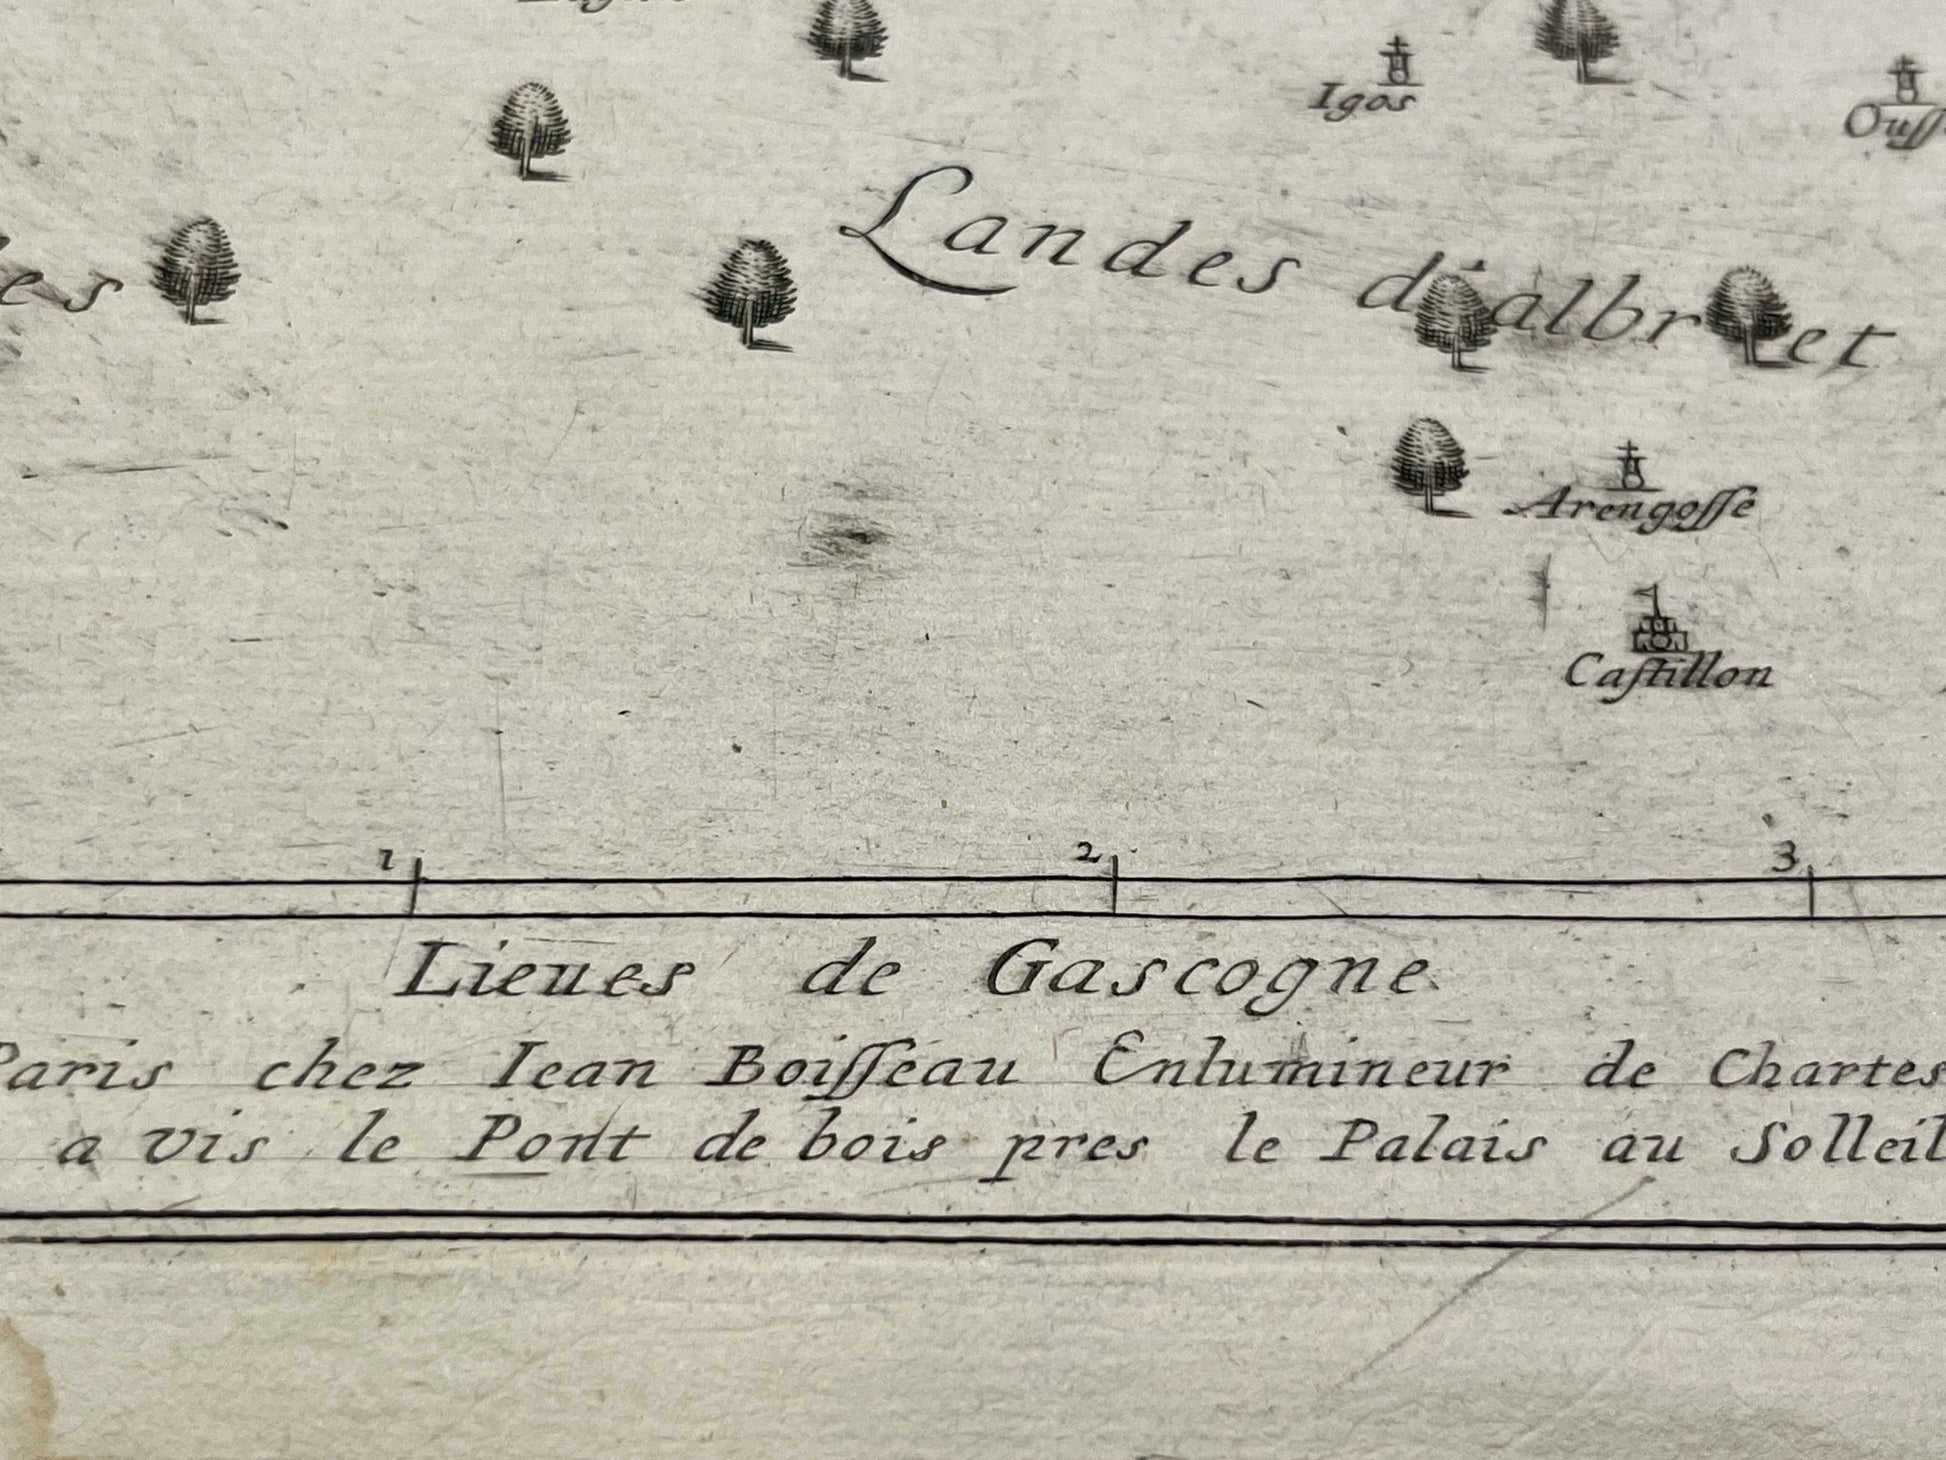 Igos
Landes d'albret
Arengoſſe
Caſtillon
1 2 3
Lieues de Gascogne
Paris chez Iean Boiſſeau Enlumineur de Chartes
a vis le Pont de bois pres le Palais au Solleil